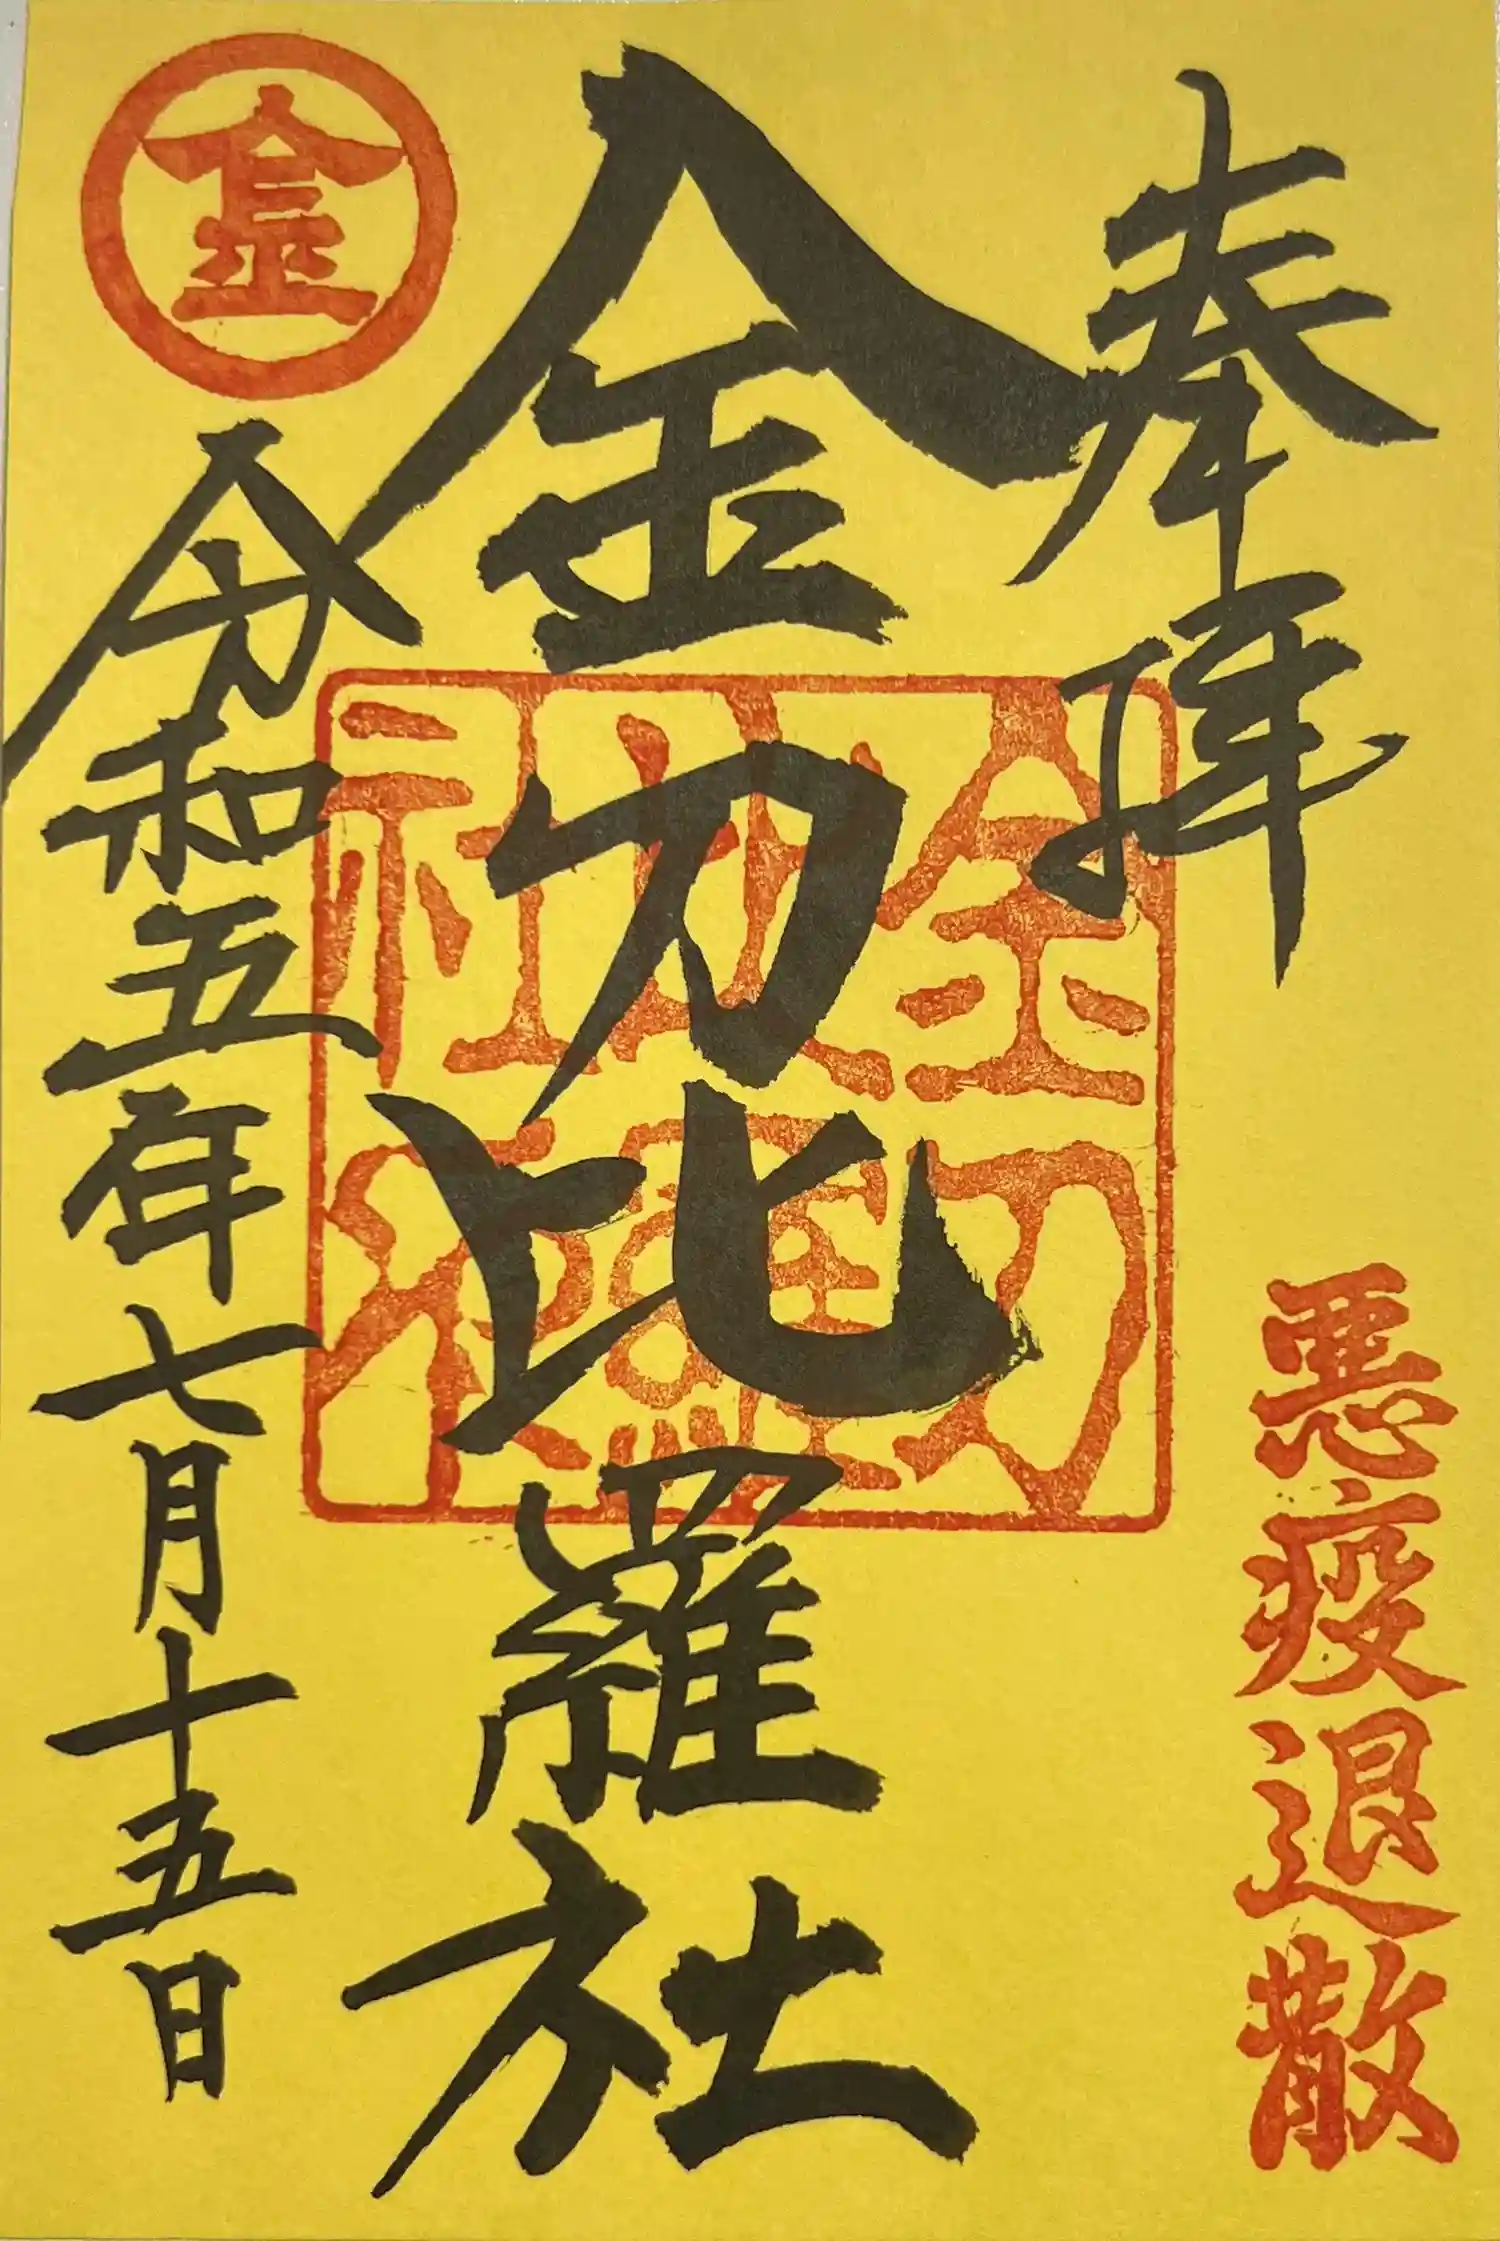 奉拝
悪疫退散
金刀比羅社
金刀比羅社
令和五年七月十五日